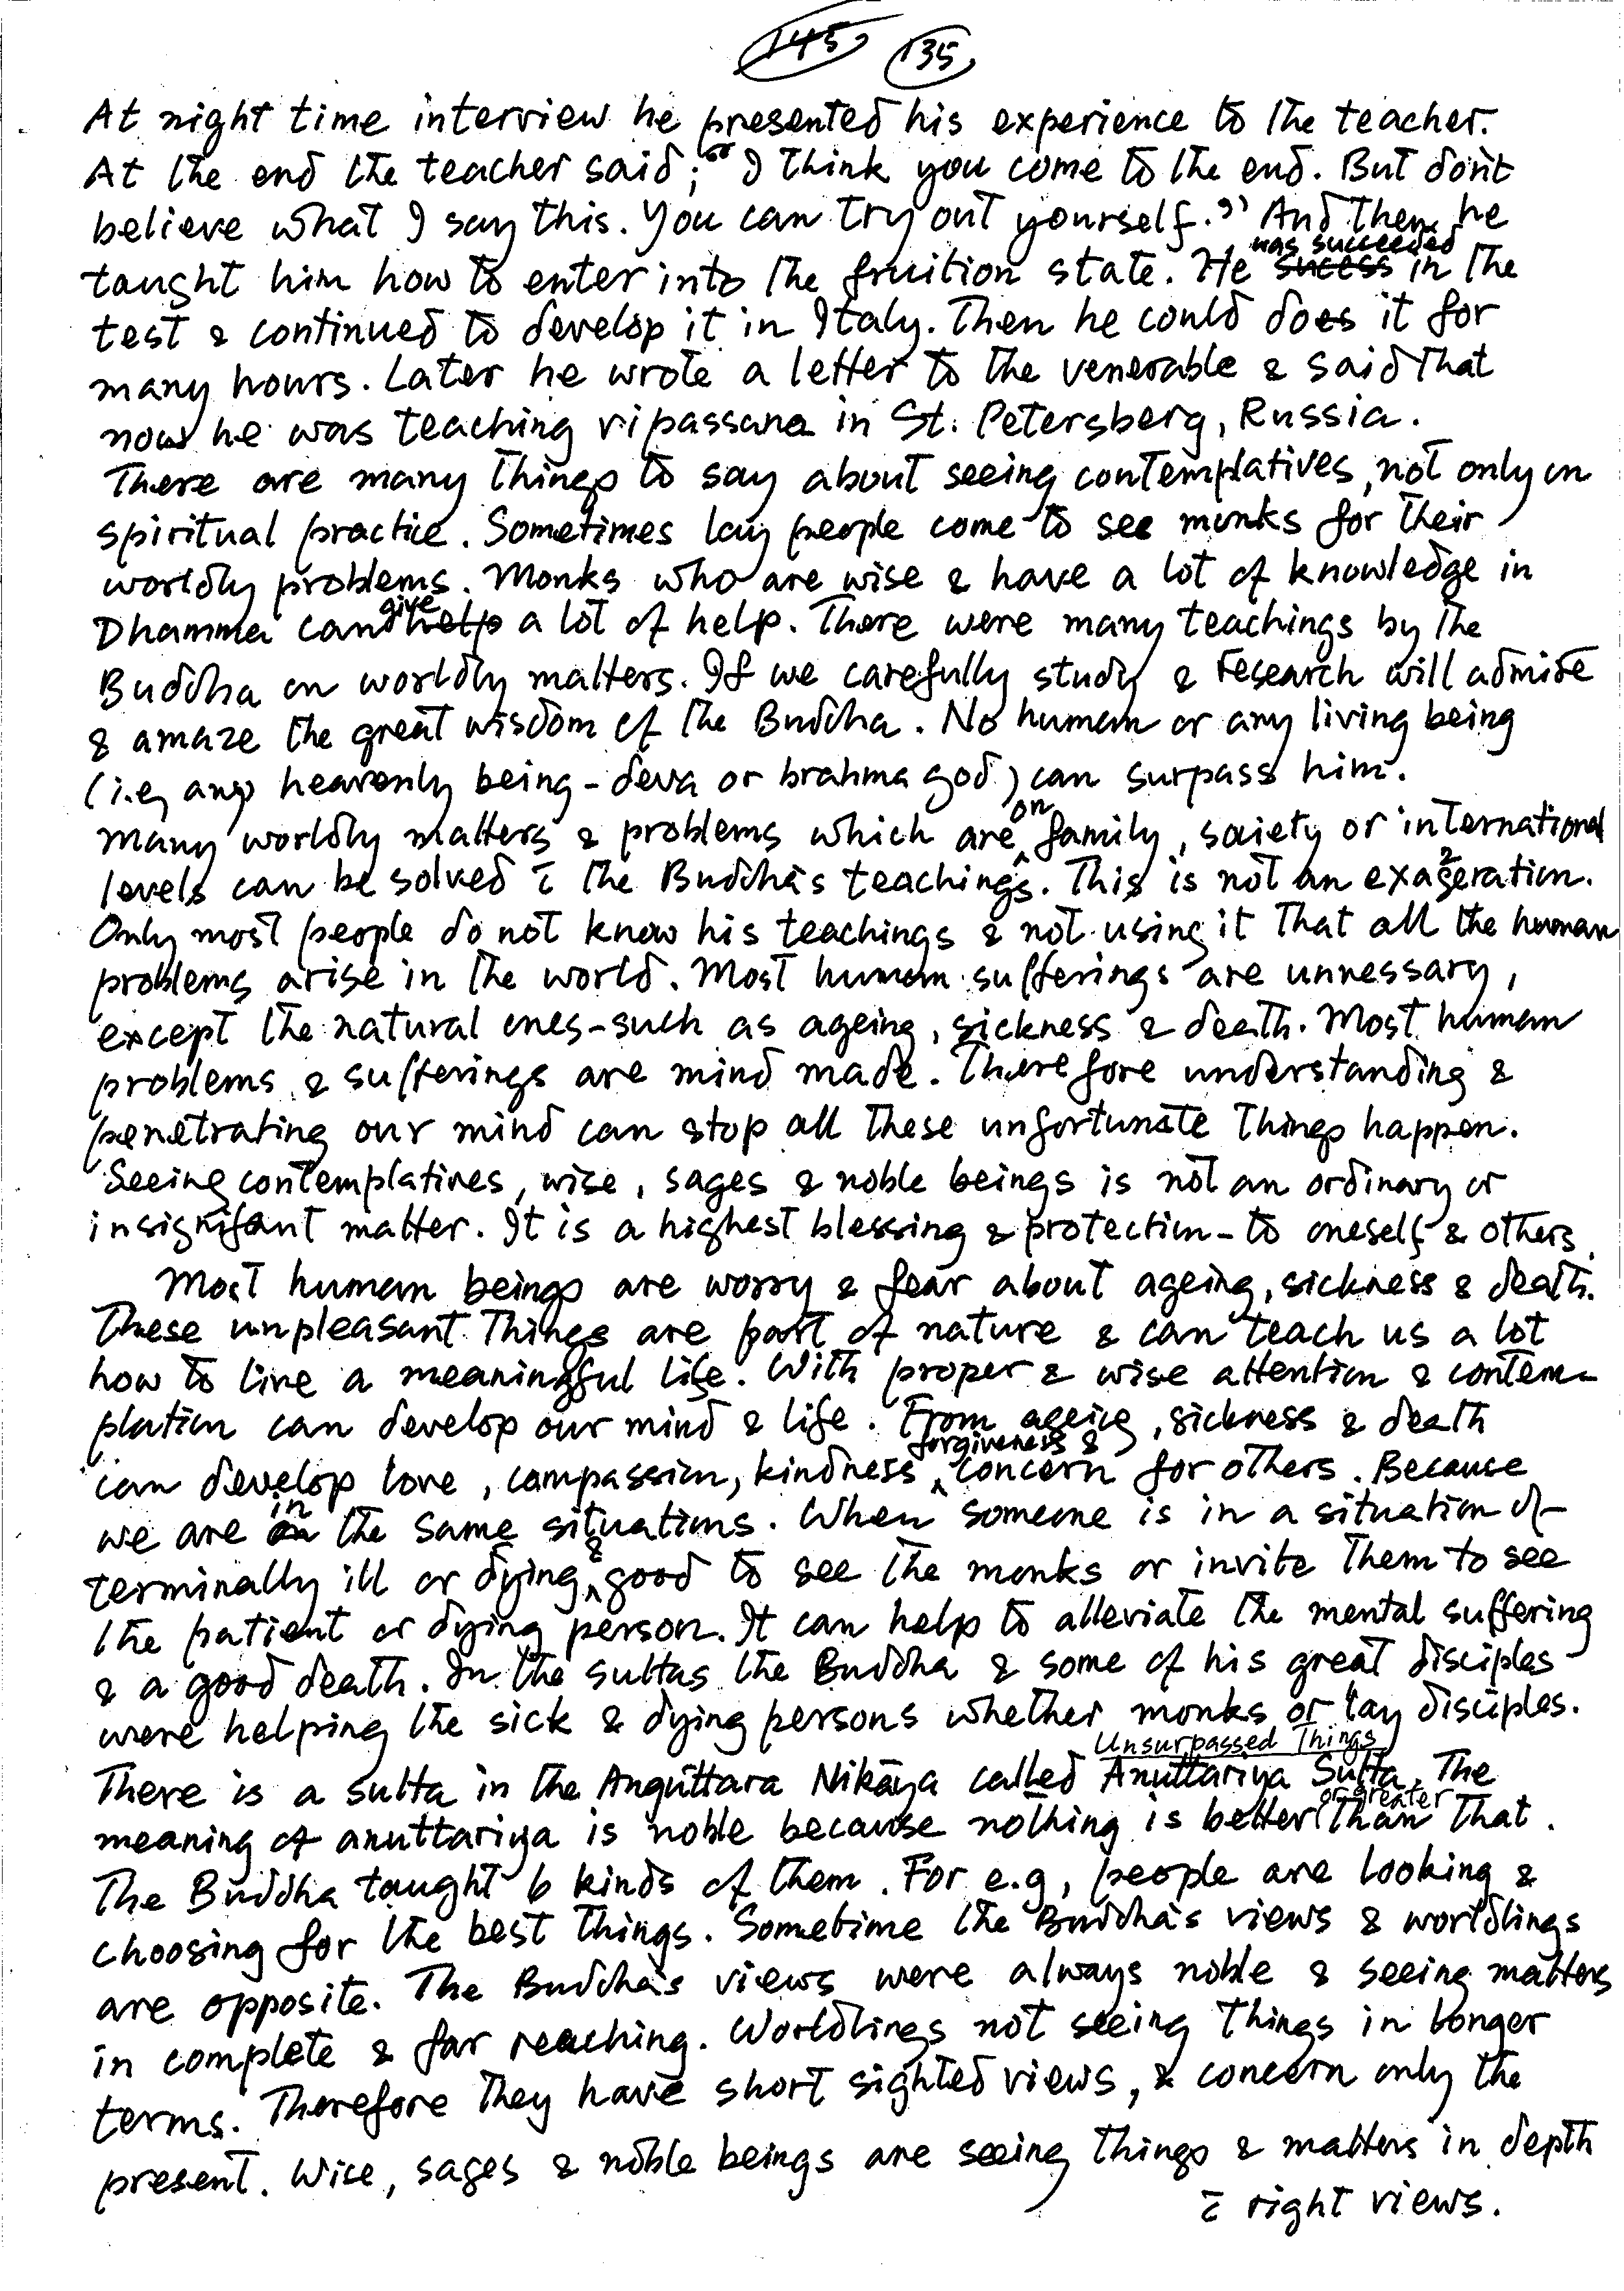 145 135
At night time interview he presented his experience to the teacher.
At the end the teacher said; “I think you come to the end. But don't
believe what I say this. You can try out yourself.” And then he
taught him how to enter into the fruition state. He was succeeded in the
test & continued to develop it in Italy. Then he could does it for
many hours. Later he wrote a letter to the venerable & said that
now he was teaching vipassana in St. Petersberg, Russia.
There are many things to say about seeing contemplatives, not only on
spiritual practice. Sometimes lay people come to see monks for their
worldly problems. Monks who are wise & have a lot of knowledge in
Dhamma can give a lot of help. There were many teachings by the
Buddha on worldly matters. If we carefully study & research will admire
& amaze the great wisdom of the Buddha. No human or any living being
(i.e, any heavenly being - deva or brahma god) can surpass him.
Many worldly matters & problems which are on family, society or international
levels can be solved c̄ the Buddha's teachings. This is not an exageration.
Only most people do not know his teachings & not using it that all the human
problems arise in the world. Most human sufferings are unnessary,
except the natural ones - such as ageing, sickness & death. Most human
problems & sufferings are mind made. Therefore understanding &
penetrating our mind can stop all these unfortunate things happen.
Seeing contemplatives, wise, sages & noble beings is not an ordinary or
insignifant matter. It is a highest blessing & protection - to oneself & others.
Most human beings are worry & fear about ageing, sickness & death.
These unpleasant things are part of nature & can teach us a lot
how to live a meaningful life. With proper & wise attention & contem-
plation can develop our mind & life. From ageing, sickness & death
can develop love, compassion, kindness, forgiveness & concern for others. Because
we are in the same situations. When someone is in a situation of
terminally ill or dying & good to see the monks or invite them to see
the patient or dying person. It can help to alleviate the mental suffering
& a good death. In the suttas the Buddha & some of his great disciples
were helping the sick & dying persons whether monks or lay disciples.
Unsurpassed Things
There is a sutta in the Aṅguttara Nikāya called Anuttariya Sutta. The
meaning of anuttariya is noble because nothing is better or greater than that.
The Buddha taught 6 kinds of them. For e.g, people are looking &
choosing for the best things. Sometime the Buddha's views & worldlings
are opposite. The Buddha's views were always noble & seeing matters
in complete & far reaching. Worldlings not seeing things in longer
terms. Therefore they have short sighted views, & concern only the
present. Wise, sages & noble beings are seeing things & matters in depth
c̄ right views.